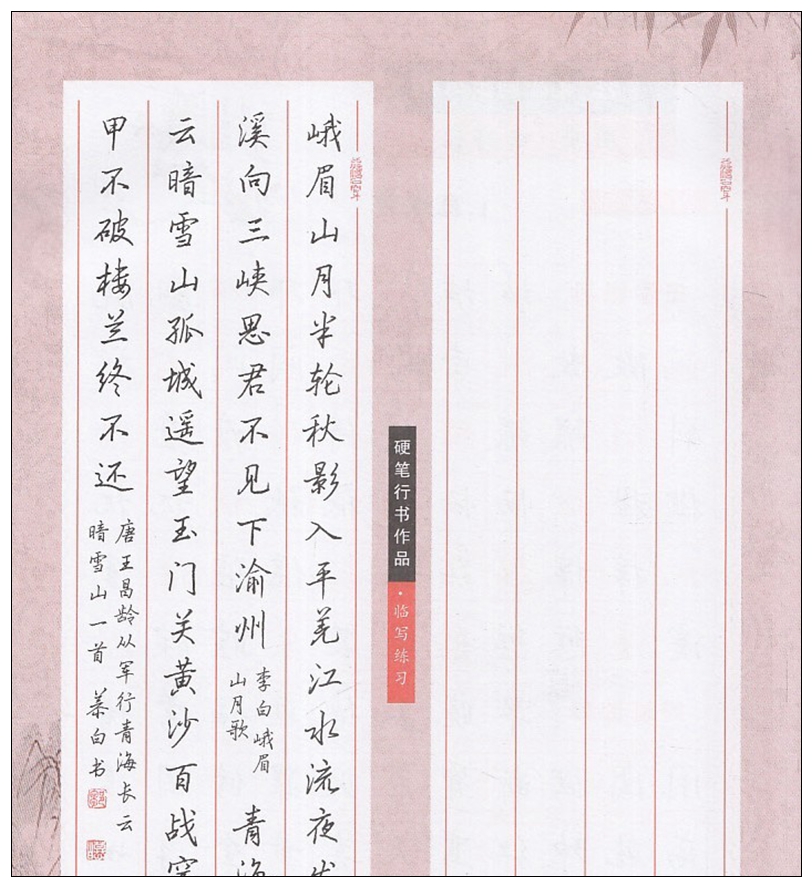 硬笔行书作品
·临写练习
峨眉山月半轮秋影入平羌江水流夜发
溪向三峡思君不见下渝州
李白峨眉
山月歌
青海
云暗雪山孤城遥望玉门关黄沙百战穿
甲不破楼兰终不还
唐王昌龄从军行青海长云
暗雪山一首 慕白书